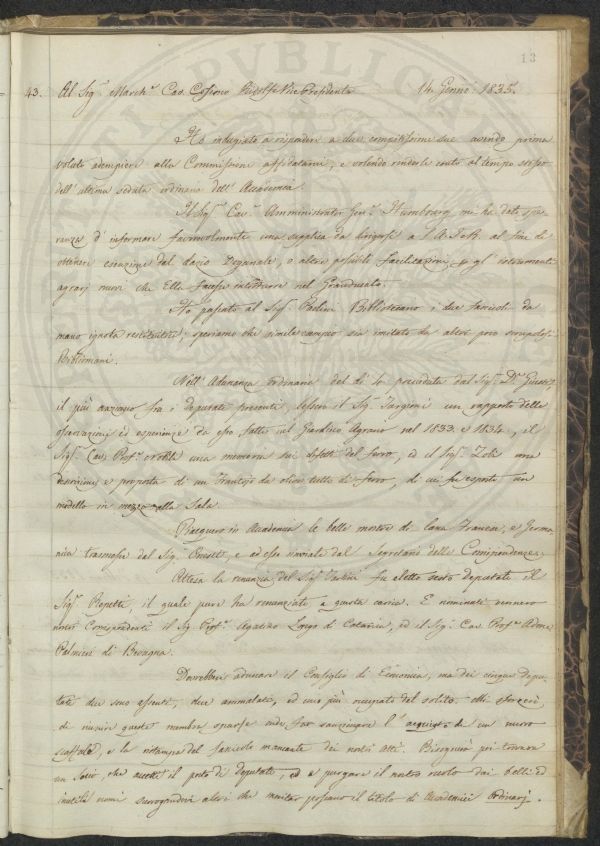 13
43. Al Sig.r March.e Cav. Cosimo Ridolfi Vice Presidente 14. Genn.o 1835.
Ho indugiato a rispondere a due compitissime sue avendo prima
voluto adempiere alla Commissione affidatami, e volendo renderle conto al tempo stesso
dell'ultima seduta ordinaria dell'Accademia.
Il Sig.r Cav.e Amministrator Gen.e Humbourg mi ha dato spe-
ranza d'informare favorevolmente una supplica da dirigersi a S. A. I. e R. al fine di
ottenere esenzione dal dazio Doganale, o altre possibili facilitazioni p gl'istrumenti
agrarj nuovi che Ella facesse introdurre nel Granducato.
Ho passato al Sig.r Paolini Bibliotecario i due fascicoli da
mano ignota restituiti, speriamo che simile esempio sia imitato da altri poco scrupolosi
Bibliomani.
Nell'Adunanza ordinaria del dì preceduta dal Sig.r D.r Giusti
il più anziano fra i deputati presenti, lessero il Sig.r Targioni un rapporto delle
osservazioni ed esperienze da esso fatte nel Giardino Agrario nel 1833 e 1834, il
Sig.r Cav. Prof.e una memoria sui difetti del ferro, ed il Sig.r Zoli una
descrizione e proposta di un Frantojo da olive tutto di ferro, di cui fu esposto un
modello in mezzo alla Sala.
Piacquero in Accademia le belle mostre di lana Francese, e Germa-
nica trasmesse dal Sig. e ad esso inviate dal Segretario delle Corrispondenze.
Attesa la renunzia del Sig.r Tartini fu eletto sesto deputato il
Sig.r Repetti, il quale pure ha renunziato a questa carica. E nominati vennero
nostri Corrispondenti il Sig. Prof.e Agatino Longo di Catania, ed il Sig.r Cav. Prof.e
Palmieri di Bevagna.
Dovrebbesi adunare il Consiglio di Economia, ma dei cinque depu-
tati due sono assenti, due ammalati, ed uno più occupato del solito. Mi sforzerò
di riunire queste membra sparse onde far sanzionare l'acquisto di un nuovo
scaffale, e la ristampa del fascicolo mancante dei nostri atti. Bisognerà poi trovare
un Socio, che accetti il posto di deputato, ed e purgare il nostro ruolo dai belli ed
inutili nomi surrogandovi altri che meritar possano il titolo di Accademici Ordinarj.